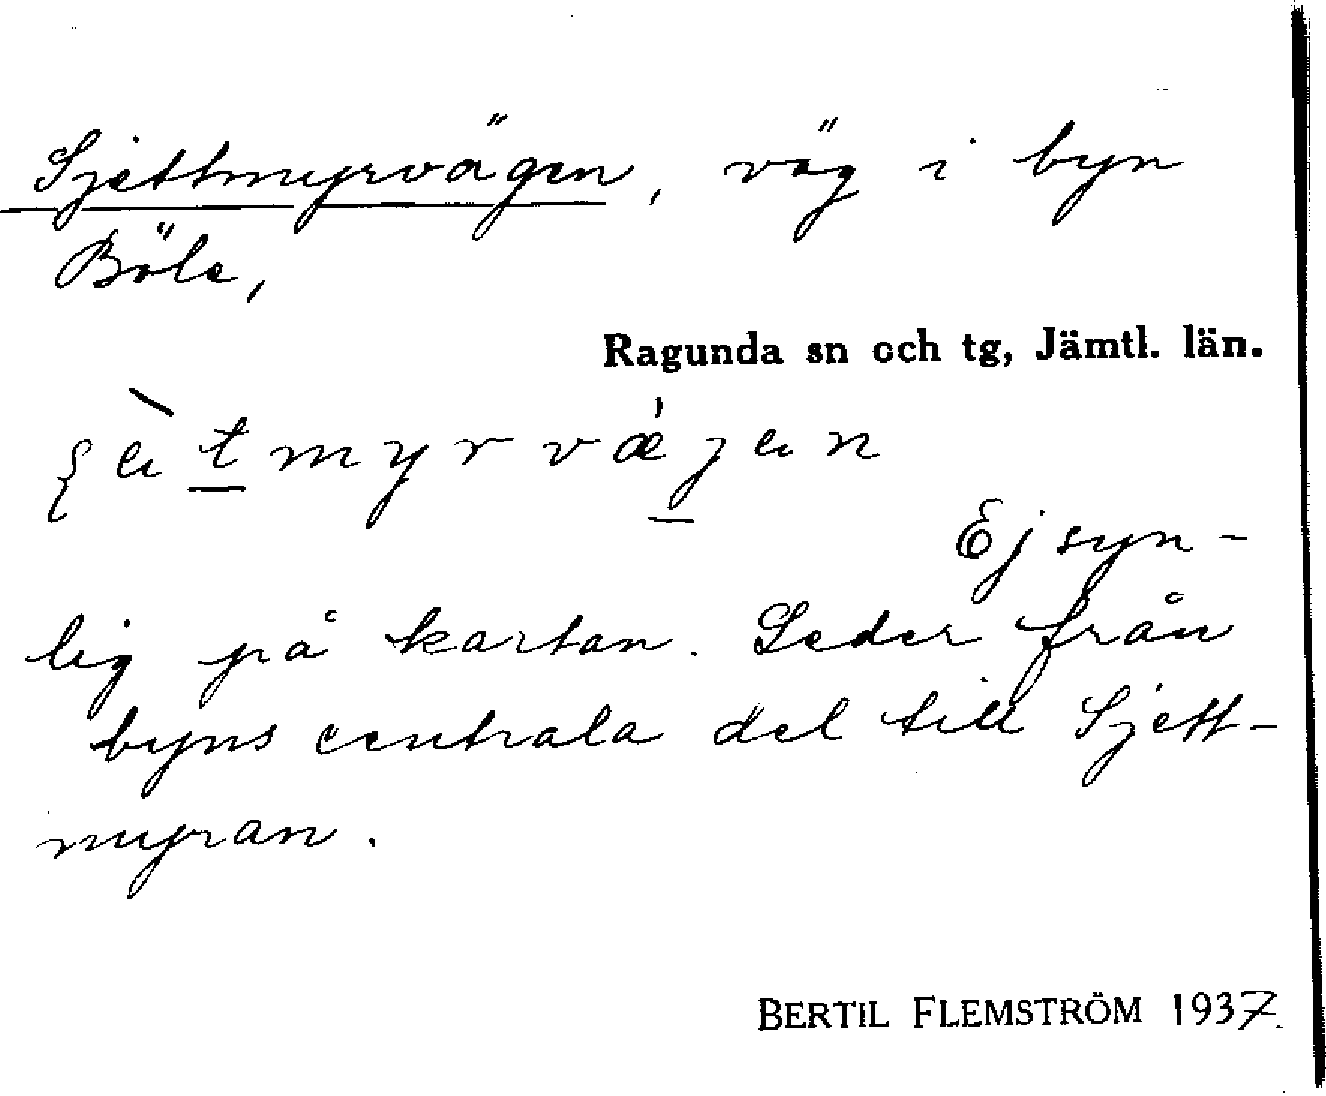 Sjettmyrvägen, väg i byn
Böle,
Ragunda sn och tg, Jämtl. län.
Ej syn-
lig på kartan. Leder från
byns centrala del till Sjett-
myran.
BERTIL FLEMSTRÖM 1937.